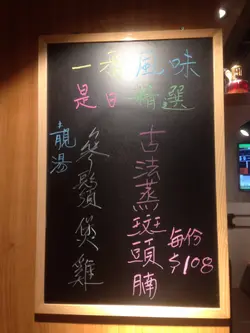 一禾風味
是日精選
古法蒸斑頭腩
每份
$108
靚湯
參鬚煲雞